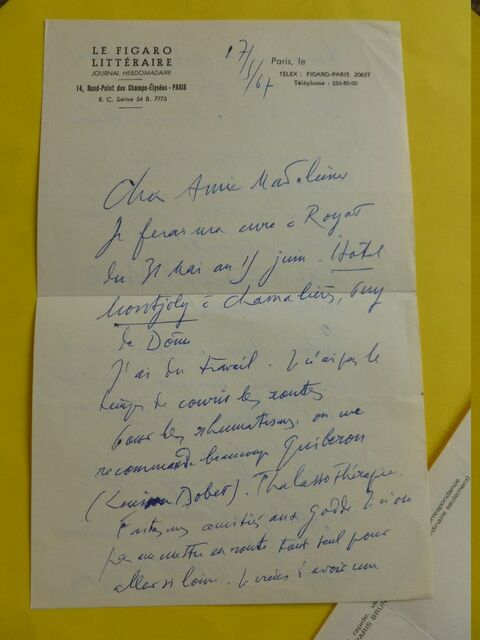 LE FIGARO
LITTÉRAIRE
JOURNAL HEBDOMADAIRE
14, Rond-Point des Champs-Élysées - PARIS
R. C. Seine 54 B. 7775
17/5/67
Paris, le
TELEX : FIGARO-PARIS 20637
Téléphone : 256-80-00
Chère Annie Madeleine
Je ferai ma cure à Royat
du 31 Mai au 15 juin. Hôtel
Montjoly à Chamalières, Puy
de Dôme
J'ai du travail. Je n'ai pas le
temps de courir les routes
Pour les rhumatismes, on me
recommande beaucoup Quiberon
(Louison Bobet). Thalassothérapie.
mes amitiés aux Godde. Je n'ose
pas me mettre en route tout seul pour
aller si loin. Je viens d'avoir un
rrespondance
dinaire seulement)
rapide
PARIS BRUN